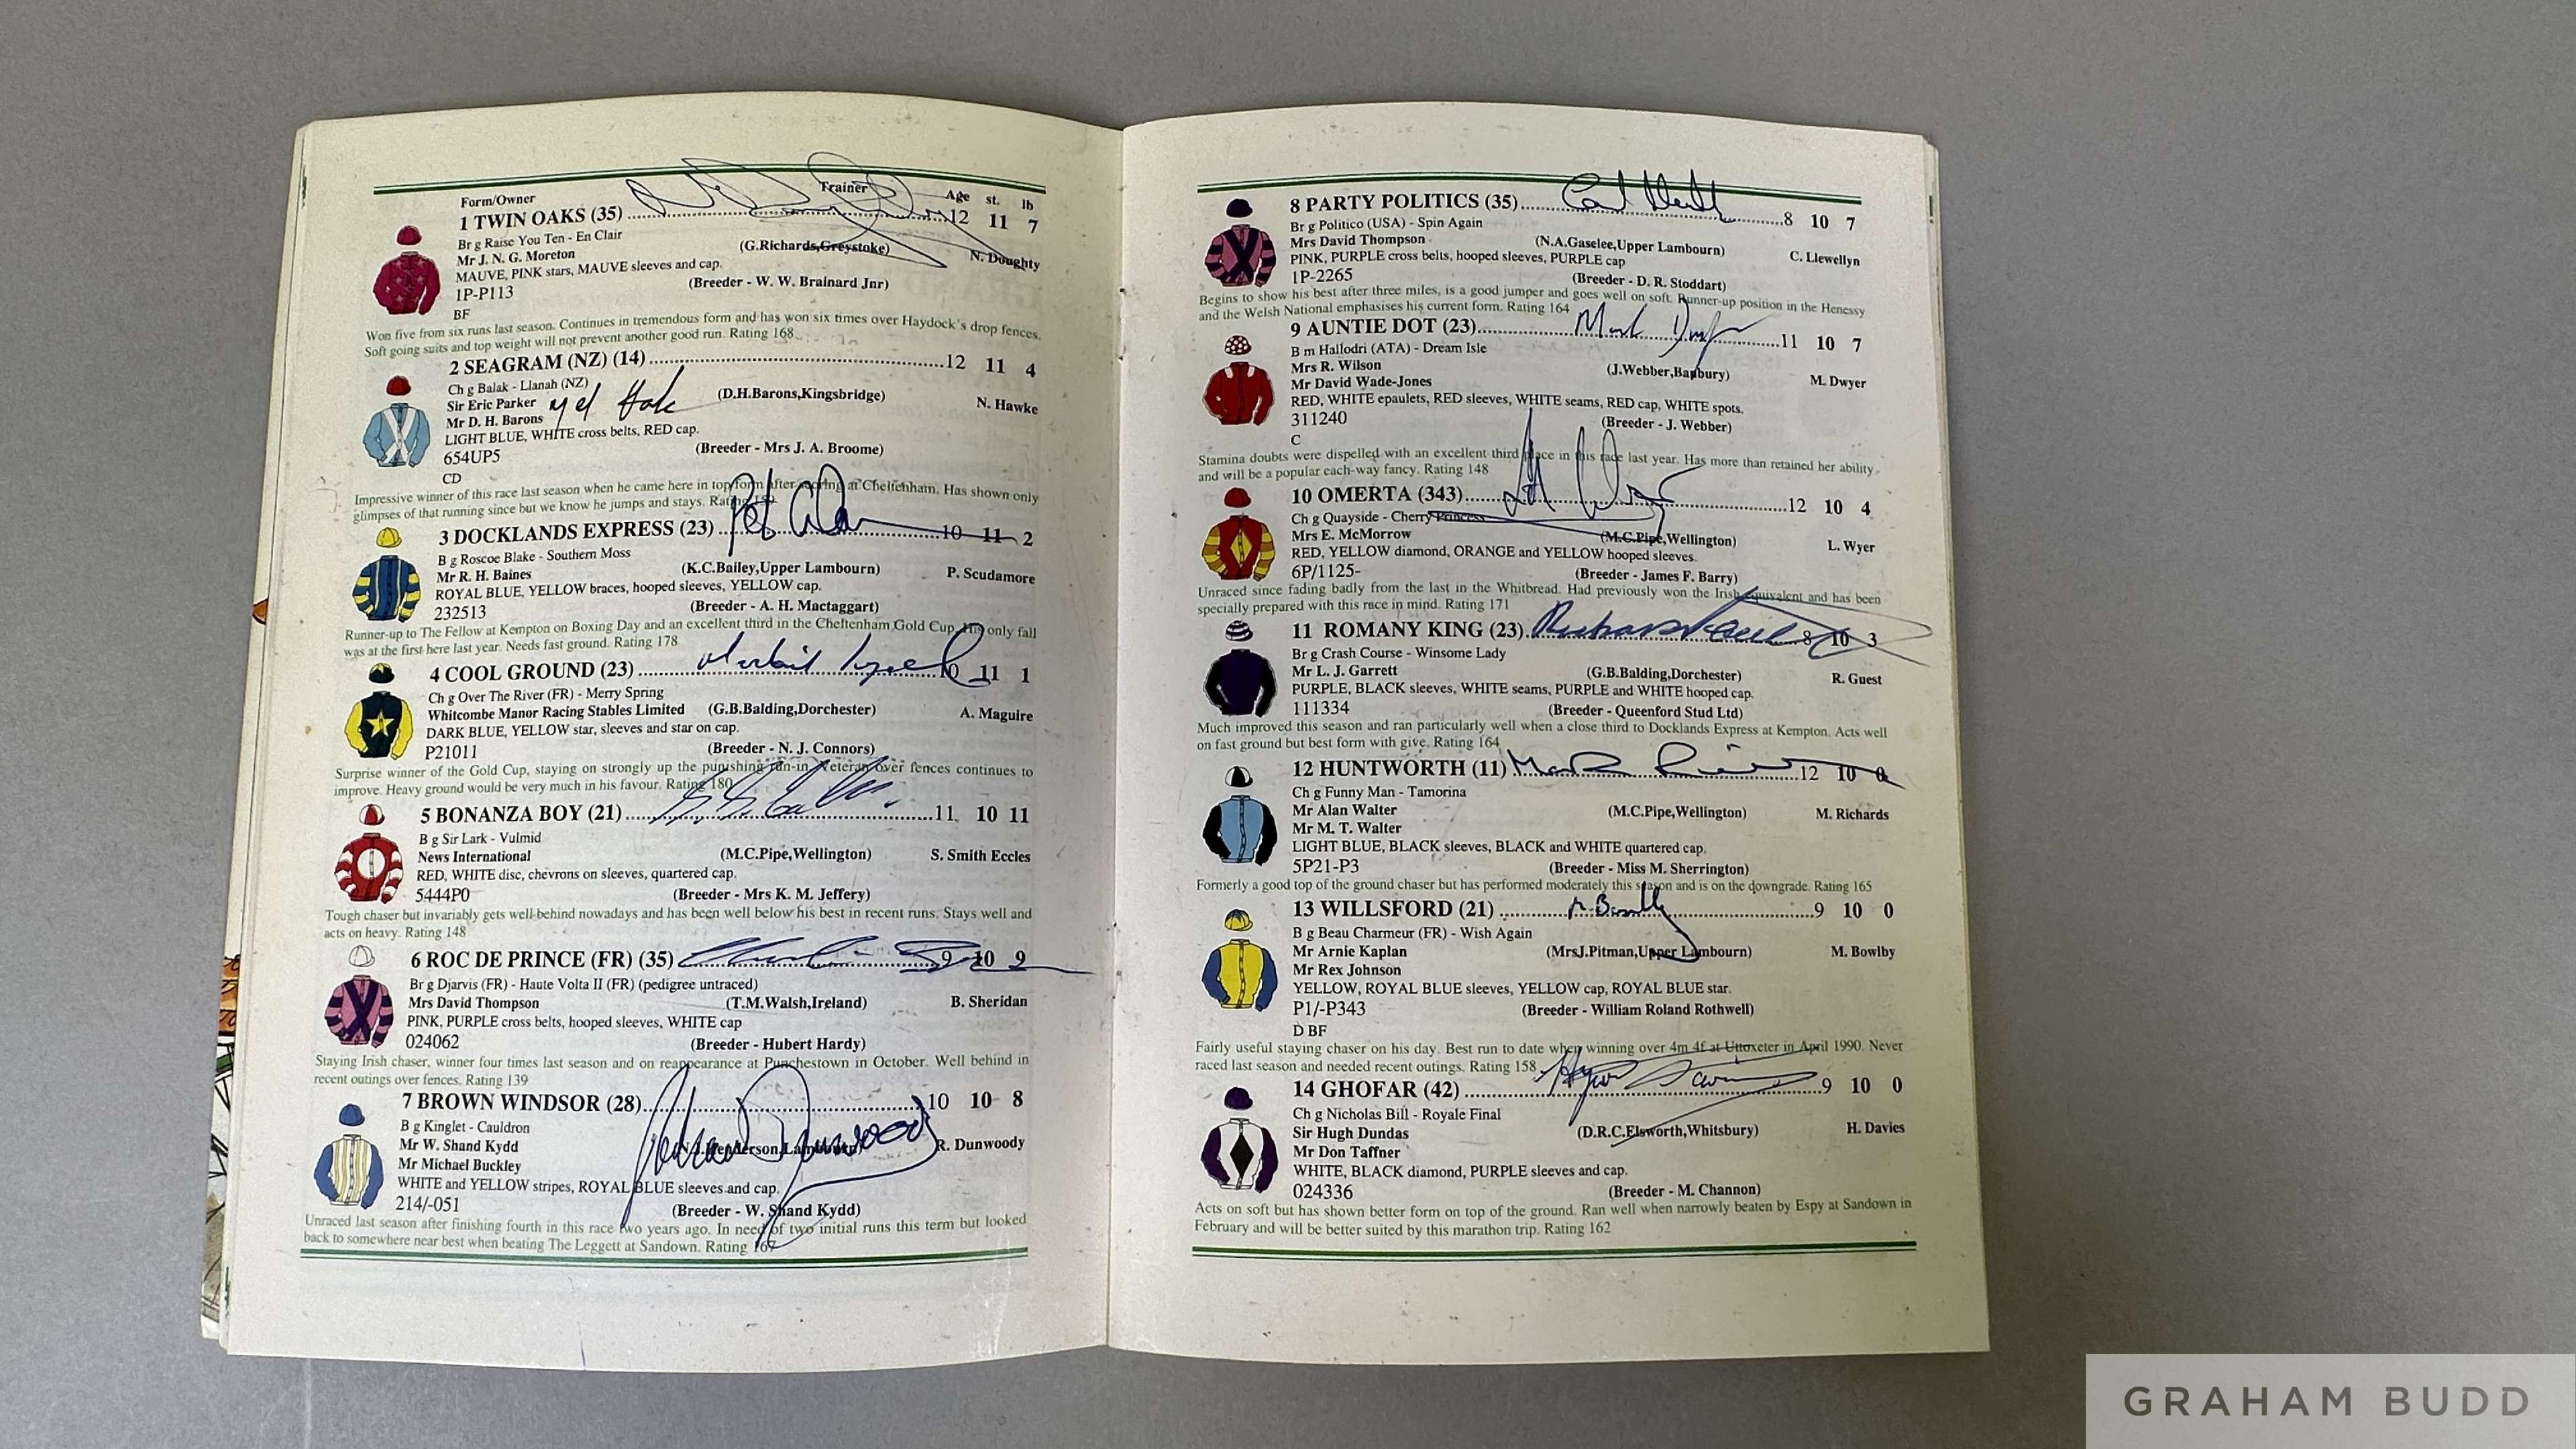 Form/Owner Trainer Age st. lb
1 TWIN OAKS (35) 12 11 7
Br g Raise You Ten - En Clair
Mr J. N. G. Moreton (G.Richards,Greystoke) N. Doughty
MAUVE, PINK stars, MAUVE sleeves and cap.
1P-P113 (Breeder - W. W. Brainard Jnr)
BF
Won five from six runs last season. Continues in tremendous form and has won six times over Haydock's drop fences.
Soft going suits and top weight will not prevent another good run. Rating 168
2 SEAGRAM (NZ) (14) 12 11 4
Ch g Balak - Llanah (NZ)
Sir Eric Parker (D.H.Barons,Kingsbridge) N. Hawke
Mr D. H. Barons
LIGHT BLUE, WHITE cross belts, RED cap.
654UP5 (Breeder - Mrs J. A. Broome)
CD
Impressive winner of this race last season when he came here in top form after scoring at Cheltenham. Has shown only
glimpses of that running since but we know he jumps and stays. Rating
3 DOCKLANDS EXPRESS (23) 10 11 2
B g Roscoe Blake - Southern Moss
Mr R. H. Baines (K.C.Bailey,Upper Lambourn) P. Scudamore
ROYAL BLUE, YELLOW braces, hooped sleeves, YELLOW cap.
232513 (Breeder - A. H. Mactaggart)
Runner-up to The Fellow at Kempton on Boxing Day and an excellent third in the Cheltenham Gold Cup. His only fall
was at the first here last year. Needs fast ground. Rating 178
4 COOL GROUND (23) 10 11 1
Ch g Over The River (FR) - Merry Spring
Whitcombe Manor Racing Stables Limited (G.B.Balding,Dorchester) A. Maguire
DARK BLUE, YELLOW star, sleeves and star on cap.
P21011 (Breeder - N. J. Connors)
Surprise winner of the Gold Cup, staying on strongly up the punishing run-in. Veteran over fences continues to
improve. Heavy ground would be very much in his favour. Rating 180
5 BONANZA BOY (21) 11 10 11
B g Sir Lark - Vulmid
News International (M.C.Pipe,Wellington) S. Smith Eccles
RED, WHITE disc, chevrons on sleeves, quartered cap.
5444P0 (Breeder - Mrs K. M. Jeffery)
Tough chaser but invariably gets well behind nowadays and has been well below his best in recent runs. Stays well and
acts on heavy. Rating 148
6 ROC DE PRINCE (FR) (35) 9 10 9
Br g Djarvis (FR) - Haute Volta II (FR) (pedigree untraced)
Mrs David Thompson (T.M.Walsh,Ireland) B. Sheridan
PINK, PURPLE cross belts, hooped sleeves, WHITE cap
024062 (Breeder - Hubert Hardy)
Staying Irish chaser, winner four times last season and on reappearance at Punchestown in October. Well behind in
recent outings over fences. Rating 139
7 BROWN WINDSOR (28) 10 10 8
B g Kinglet - Cauldron
Mr W. Shand Kydd (N.J.Henderson,Lambourn) R. Dunwoody
Richard Dunwoody
Mr Michael Buckley
WHITE and YELLOW stripes, ROYAL BLUE sleeves and cap.
214/-051 (Breeder - W. Shand Kydd)
Unraced last season after finishing fourth in this race two years ago. In need of two initial runs this term but looked
back to somewhere near best when beating The Leggett at Sandown. Rating 167
8 PARTY POLITICS (35) 8 10 7
Br g Politico (USA) - Spin Again
Mrs David Thompson (N.A.Gaselee,Upper Lambourn) C. Llewellyn
PINK, PURPLE cross belts, hooped sleeves, PURPLE cap
1P-2265 (Breeder - D. R. Stoddart)
Begins to show his best after three miles, is a good jumper and goes well on soft. Runner-up position in the Henessy
and the Welsh National emphasises his current form. Rating 164
9 AUNTIE DOT (23) Mark Dwyer 11 10 7
B m Hallodri (ATA) - Dream Isle
Mrs R. Wilson (J.Webber,Banbury) M. Dwyer
Mr David Wade-Jones
RED, WHITE epaulets, RED sleeves, WHITE seams, RED cap, WHITE spots.
311240 (Breeder - J. Webber)
C
Stamina doubts were dispelled with an excellent third place in this race last year. Has more than retained her ability
and will be a popular each-way fancy. Rating 148
10 OMERTA (343) 12 10 4
Ch g Quayside - Cherry Princess
Mrs E. McMorrow (M.C.Pipe,Wellington) L. Wyer
RED, YELLOW diamond, ORANGE and YELLOW hooped sleeves.
6P/1125- (Breeder - James F. Barry)
Unraced since fading badly from the last in the Whitbread. Had previously won the Irish equivalent and has been
specially prepared with this race in mind. Rating 171
11 ROMANY KING (23) Richard Guest 8 10 3
Br g Crash Course - Winsome Lady
Mr L. J. Garrett (G.B.Balding,Dorchester) R. Guest
PURPLE, BLACK sleeves, WHITE seams, PURPLE and WHITE hooped cap.
111334 (Breeder - Queenford Stud Ltd)
Much improved this season and ran particularly well when a close third to Docklands Express at Kempton. Acts well
on fast ground but best form with give. Rating 164
12 HUNTWORTH (11) 12 10 0
Ch g Funny Man - Tamorina
Mr Alan Walter (M.C.Pipe,Wellington) M. Richards
Mr M. T. Walter
LIGHT BLUE, BLACK sleeves, BLACK and WHITE quartered cap.
5P21-P3 (Breeder - Miss M. Sherrington)
Formerly a good top of the ground chaser but has performed moderately this season and is on the downgrade. Rating 165
13 WILLSFORD (21) M. Bowlby 9 10 0
B g Beau Charmeur (FR) - Wish Again
Mr Arnie Kaplan (MrsJ.Pitman,Upper Lambourn) M. Bowlby
Mr Rex Johnson
YELLOW, ROYAL BLUE sleeves, YELLOW cap, ROYAL BLUE star.
P1/-P343 (Breeder - William Roland Rothwell)
D BF
Fairly useful staying chaser on his day. Best run to date when winning over 4m 4f at Uttoxeter in April 1990. Never
raced last season and needed recent outings. Rating 158
14 GHOFAR (42) 9 10 0
Ch g Nicholas Bill - Royale Final
Sir Hugh Dundas (D.R.C.Elsworth,Whitsbury) H. Davies
Mr Don Taffner
WHITE, BLACK diamond, PURPLE sleeves and cap.
024336 (Breeder - M. Channon)
Acts on soft but has shown better form on top of the ground. Ran well when narrowly beaten by Espy at Sandown in
February and will be better suited by this marathon trip. Rating 162
GRAHAM BUDD